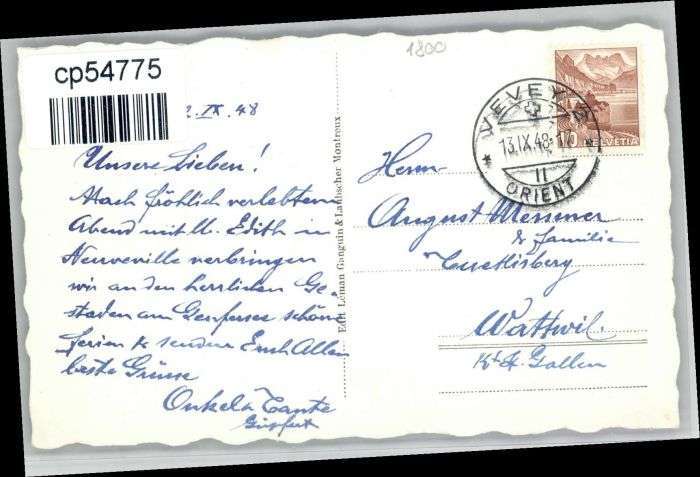 1800
cp54775
2. IX. 48
VEVEY
13.IX.48
II
ORIENT
10 HELVETIA
Unsere Lieben!
Nach fröhlich verlebtem
Abend mit U. Edith in
Neuveville verbringen
wir an den herrlichen Ge-
staden am Genfersee schöne
Ferien & senden Euch Allen
beste Grüsse
Onkel & Tante
Edit. Léman Ganguin & Laubscher Montreux
Herrn
August Messmer
& Familie
Wattwil.
Kt. St. Gallen